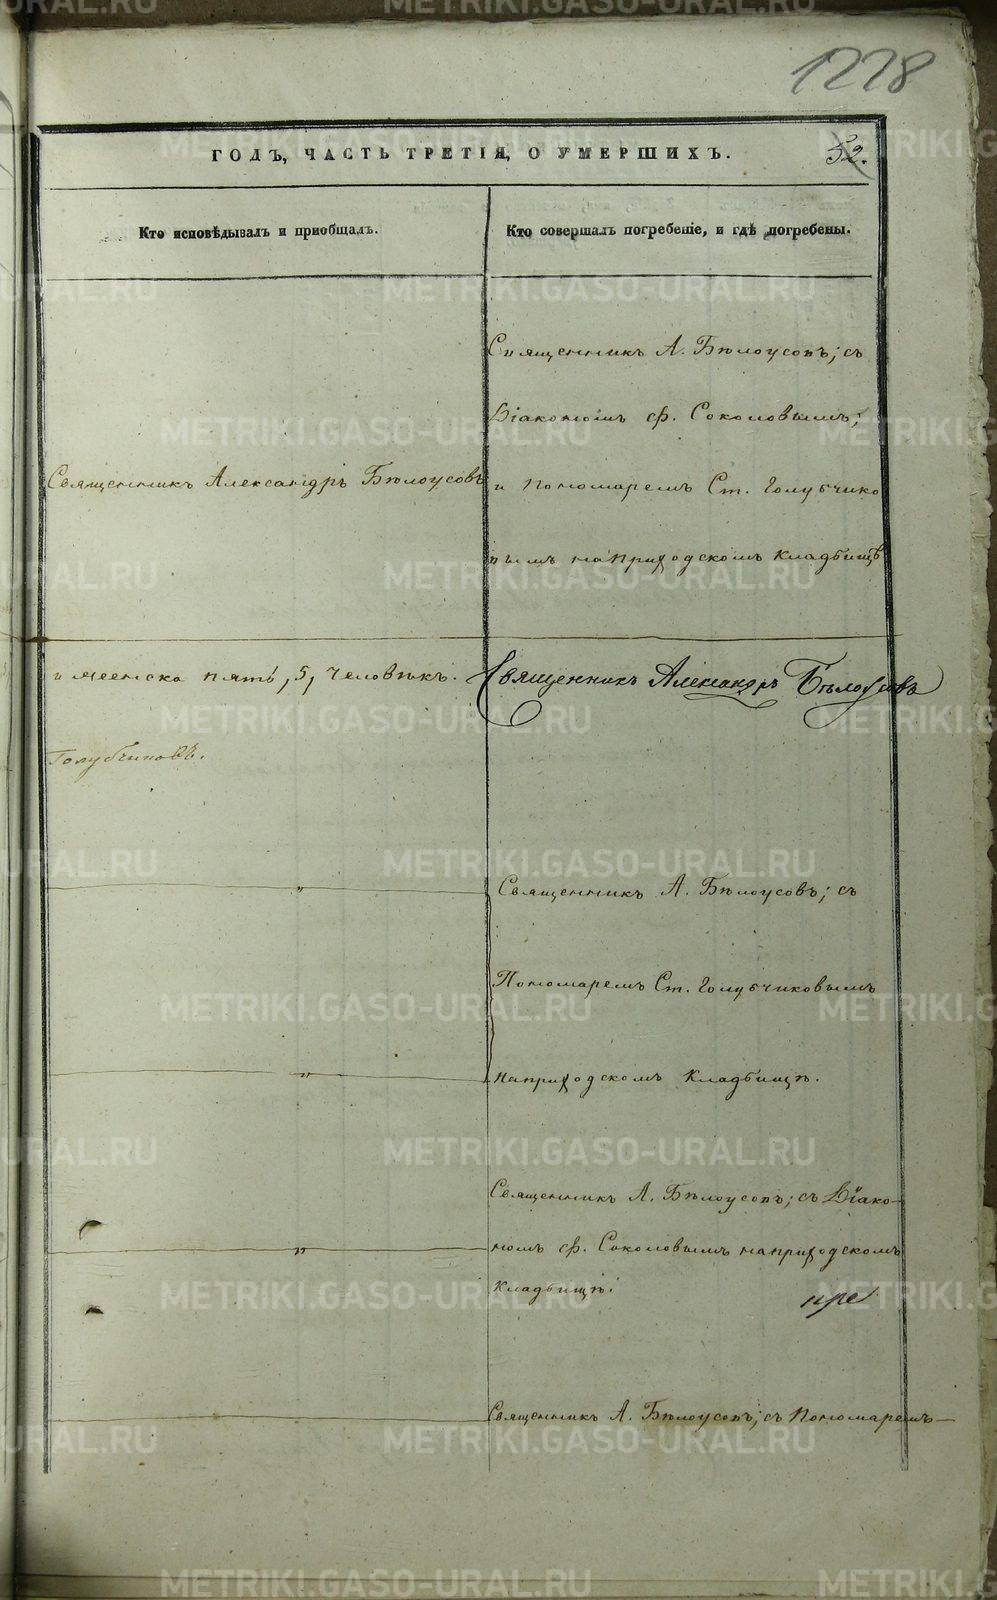 1228
ГОДЪ, ЧАСТЬ ТРЕТІЯ, О УМЕРШИХЪ.
52.
Кто исповѣдывалъ и пріобщалъ.
Кто совершалъ погребеніе, и гдѣ погребены.
Священникъ А. Бѣлоусовъ; съ
Діакономъ Ф. Соколовымъ;
Священникъ Александръ Бѣлоусовъ
и Пономаремъ Ст. Голубчико
вымъ на приходскомъ кладбищѣ
и женска пять, 5, человѣкъ.
Священникъ Александръ Бѣлоусовъ
Голубчиковъ.
Священникъ А. Бѣлоусовъ; съ
Пономаремъ Ст. Голубчиковымъ
на приходскомъ кладбищѣ.
Священникъ А. Бѣлоусовъ; съ Діако-
номъ Ф. Соколовымъ на приходскомъ
кладбищѣ.
пре
Священникъ А. Бѣлоусовъ; съ Пономаремъ
METRIKI.GASO-URAL.RU